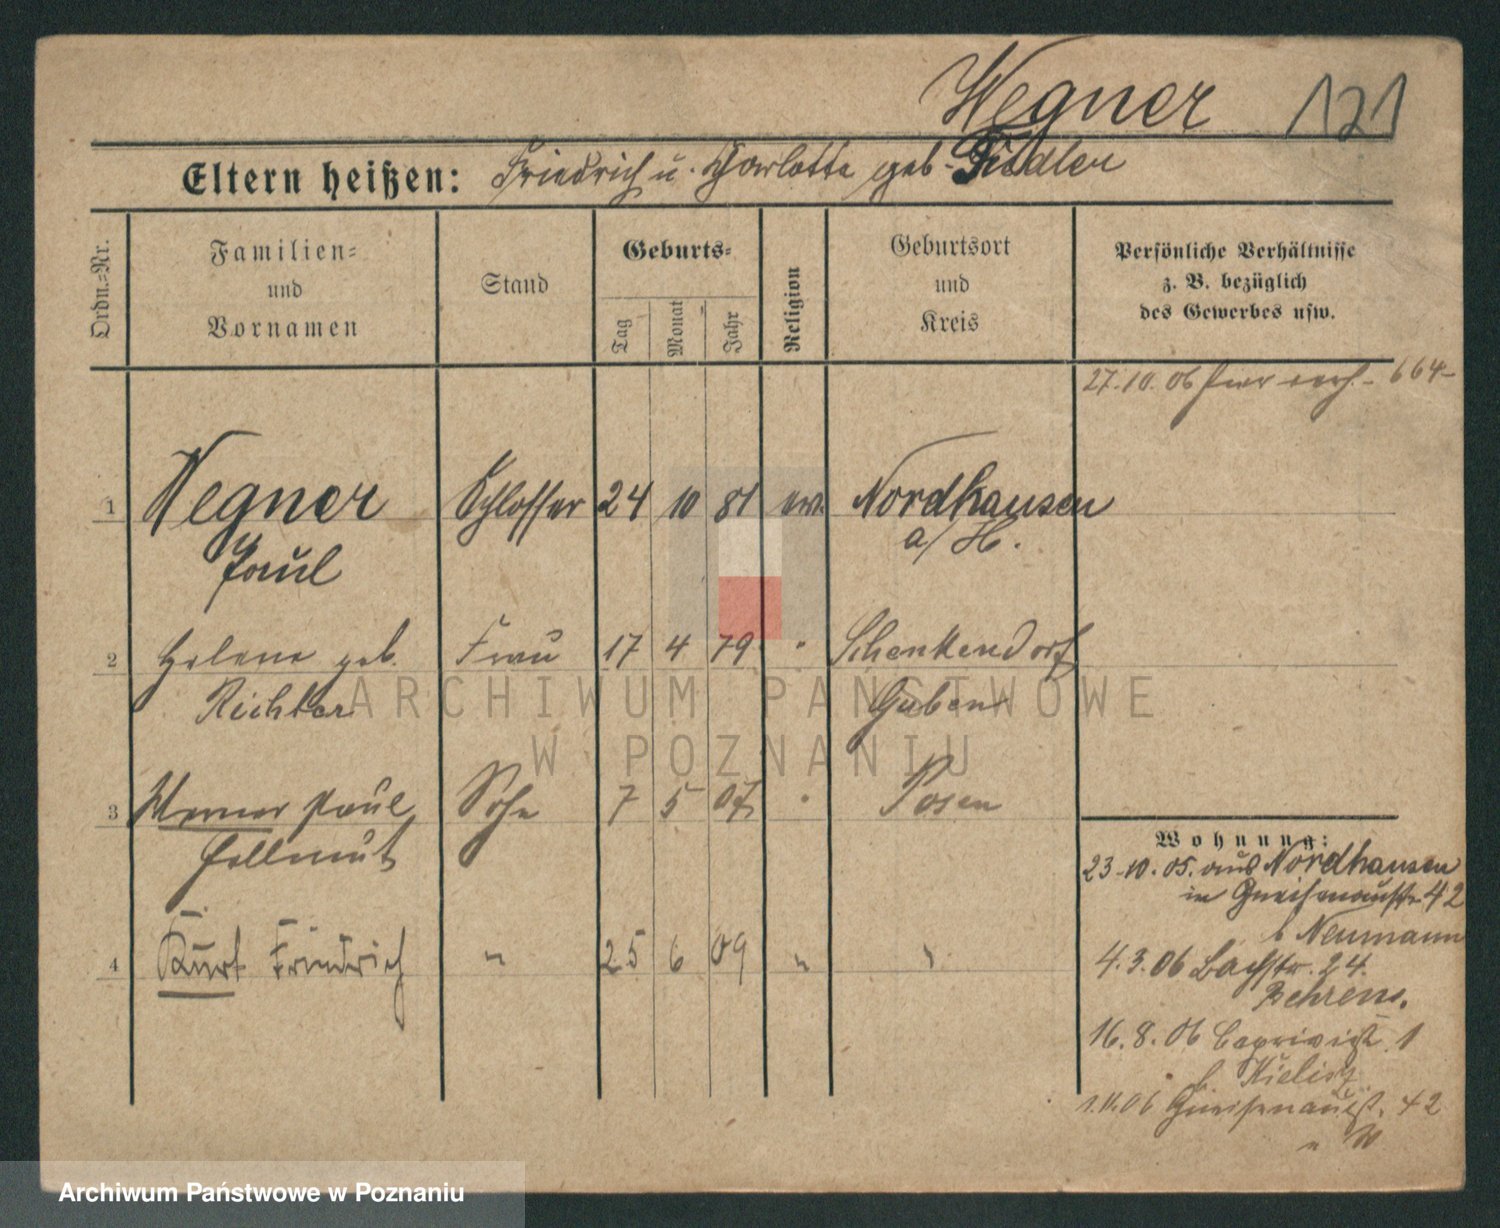 Wegner 121
Eltern heißen: Friedrich u. Charlotte geb. Fiedler
Ordn.-Nr.
Familien-
und
Vornamen
Stand
Geburts-
Tag
Monat
Jahr
Religion
Geburtsort
und
Kreis
Persönliche Verhältnisse
z. B. bezüglich
des Gewerbes usw.
27.10.06 hier verh. - 664-
1 Wegner Schlosser 24 10 81 ev. Nordhausen
Paul a/H.
2 Helene geb. Frau 17 4 79 " Schenkendorf
Richter Guben
3 Werner Paul Sohn 7 5 07 " Posen
Hellmut
4 Kurt Friedrich " 25 6 09 " "
Wohnung:
23.10.05. aus Nordhausen
in Gneisenaustr. 42
b Neumann
4.3.06 Bachstr. 24.
Behrens.
16.8.06 Caprivist. 1
1.11.06 Gneisenaust. 42
ARCHIWUM PAŃSTWOWE
W POZNANIU
Archiwum Państwowe w Poznaniu